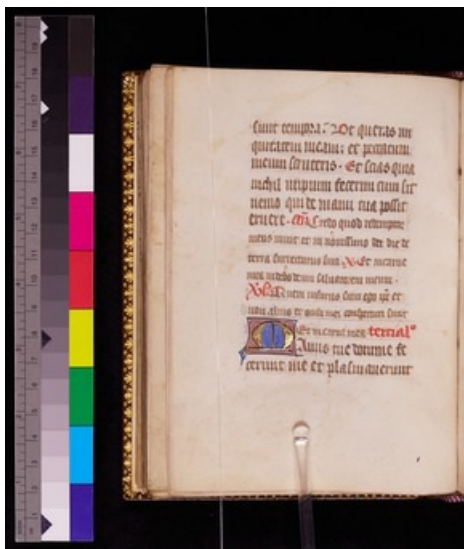 sunt tempora. Ut queras ini
quitatem meam: et peccatum
meum scruteris. Et scias quia
nichil impium fecerim cum sit
nemo qui de manu tua possit
eruere. Credo quod redemptor
meus vivit et in novissimo die de
terra surrecturus sum. Et in carne
mea videbo deum salvatorem meum.
Quem visurus sum ego ipse et
non alius et oculi mei conspecturi sunt
Et in carne mea. tercia lo
Manus tue domine fe
cerunt me et plasmaverunt